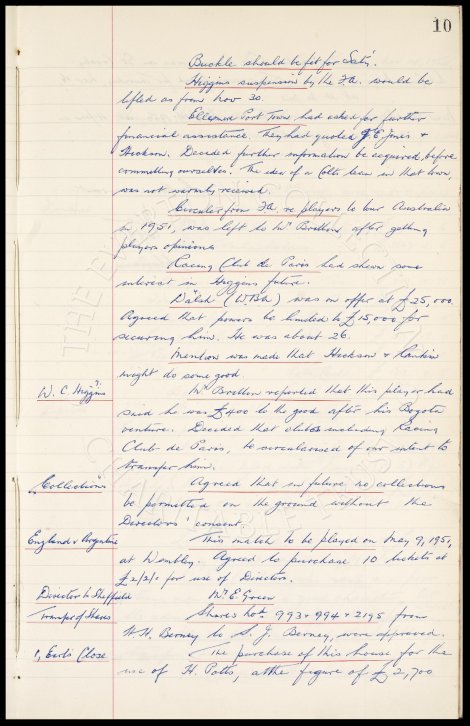 10
Buckle should be fit for Sat'y.
Higgins suspension by the F.A. would be
lifted as from Nov 30.
Ellesmere Port Town, had asked for further
financial assistance. They had quoted J. E. Jones &
Hickson. Decided further information be acquired, before
committing ourselves. The idea of a Colts team in that town,
was not warmly received.
Circular from F.A. re players to tour Australia
in 1951, was left to Mr Britton, after getting
players opinions
Racing Club de Paris had shewn some
interest in Higgins future.
Walsh (WBA) was on offer at £25,000.
Agreed that powers be limited to £15,000 for
securing him. He was about 26.
Mention was made that Hickson & Rankin
might do some good.
W. C. Higgins
Mr Britton reported that this player had
said he was £400 to the good after his Bogota
venture. Decided that clubs including Racing
Club de Paris, be circularised of our intent to
transfer him.
Collections
Agreed that in future no collections
be permitted on the ground without the
Directors' consent.
England v Argentine
This match to be played on May 9, 1951,
at Wembley. Agreed to purchase 10 tickets at
£2/2/- for use of Directors.
Director to Sheffield
Mr E. Green
Transfer of Shares
Shares Nos. 993 & 994 & 2195 from
W. H. Berney to S. J. Berney, were approved.
1, Earls Close
The purchase of this house for the
use of H. Potts, at the figure of £2,700